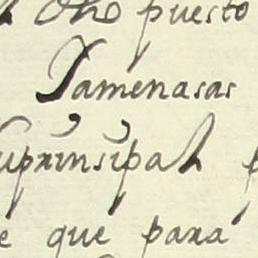 otro puesto
Jamenasas
uprinsipal p
e que para